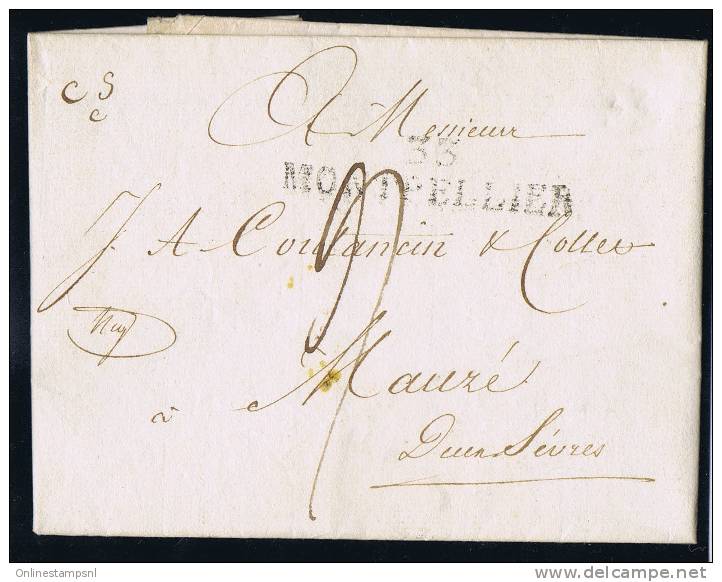 C S
c
A Monsieur
33
MONTPELLIER
J. A Coutancin & Colles
à Mauzé
Deux Sèvres
Onlinestampsnl
www.delcampe.net